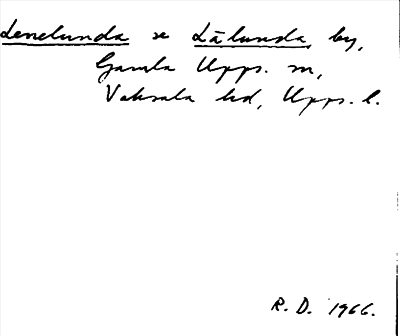 Lenelunda se Lālunda by,
Gamla Upps. sn,
Vaksala hd, Upps. l.
R. D. 1966.